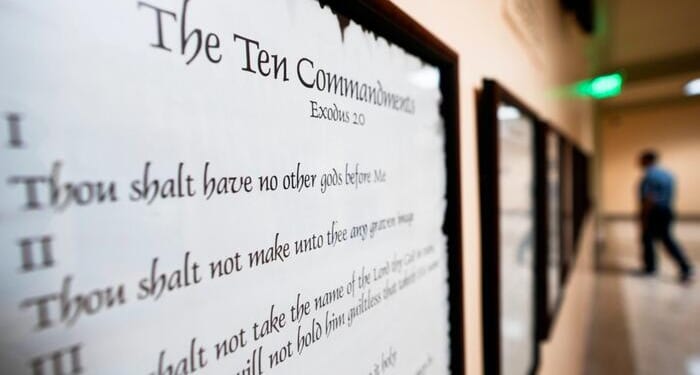 The Ten Commandments
Exodus 20
I
Thou shalt have no other gods before Me
II
Thou shalt not make unto thee any graven image
III
shalt not take the name of the Lord thy God in vain
will not hold him guiltless that
it holy